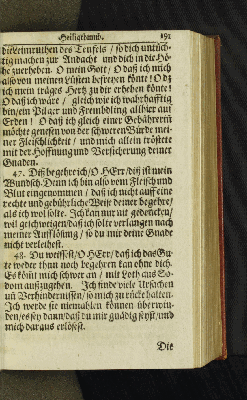 Heiligthumb. 191
die Leimruthen des Teufels / so dich untüch-
tig machen zur Andacht und dich in die Hö-
he zuerheben. O mein Gott / O daß ich mich
also von meinen Lüsten befreyen könte! O daß
ich mein träges Hertz zu dir erheben könte!
O daß ich wäre / gleich wie ich warhafftig
bin / ein Pilger und Frembdling allhier auf
Erden! O daß ich gleich einer Gebährerin
möchte genesen von der schweren Bürde mei-
ner Fleischlichkeit / und mich allein tröstete
mit der Hoffnung und Versicherung deiner
Gnaden.
47. Diß begehre ich / O HErr / diß ist mein
Wundsch. Denn ich bin also vom Fleisch und
Blut eingenommen / daß ich nicht auff eine
rechte und gebührliche Weise deiner begehre /
als ich wol solte. Ich kan nur nit gedencken /
wil geschweigen / daß ich solte verlangen nach
meiner Aufflösung / so du mir deine Gnad
nicht verleihest.
48. Du weissest / O HErr / daß ich das Gu-
te weder thun noch begehren kan ohne dich.
Es kömt mich schwer an / mit Loth aus So-
dom außzugehen. Ich finde viele Ursachen
und Verhindernissen / so mich zurück halten.
Ich werde sie niemahlen können überwin-
den / es sey dann / daß du mir gnädig seyst / und
mich daraus erlösest.
Die